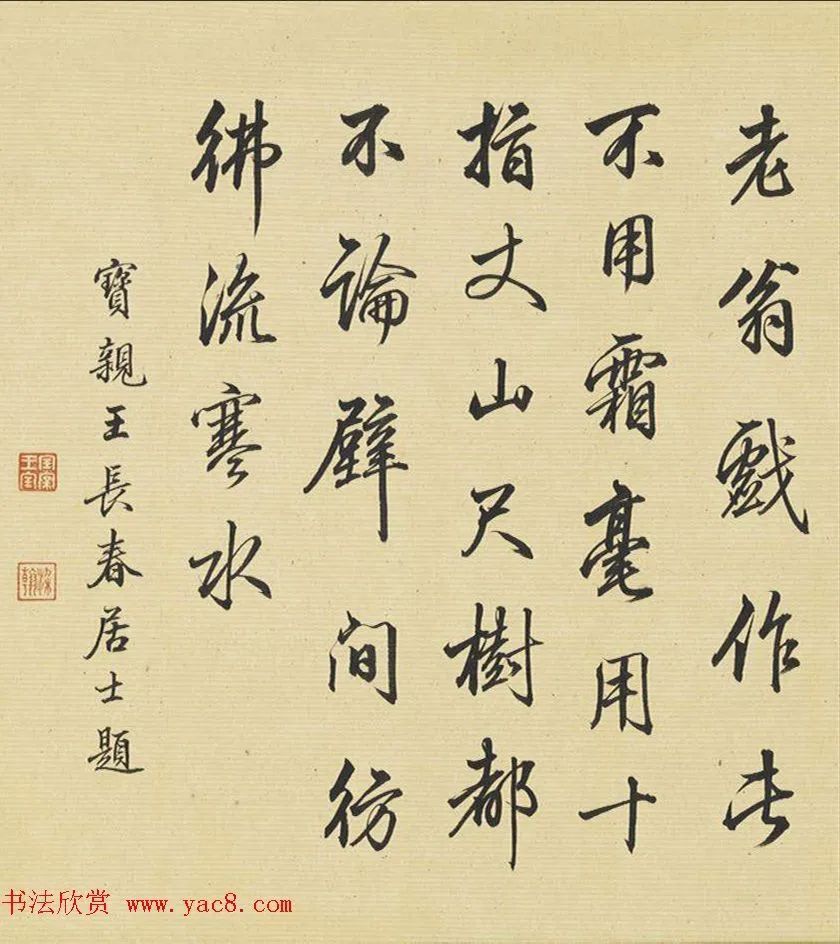 老翁戲作此
不用霜毫用十
指丈山尺樹都
不論壁間彷
彿流寒水
寶親王長春居士題
书法欣赏 www.yac8.com